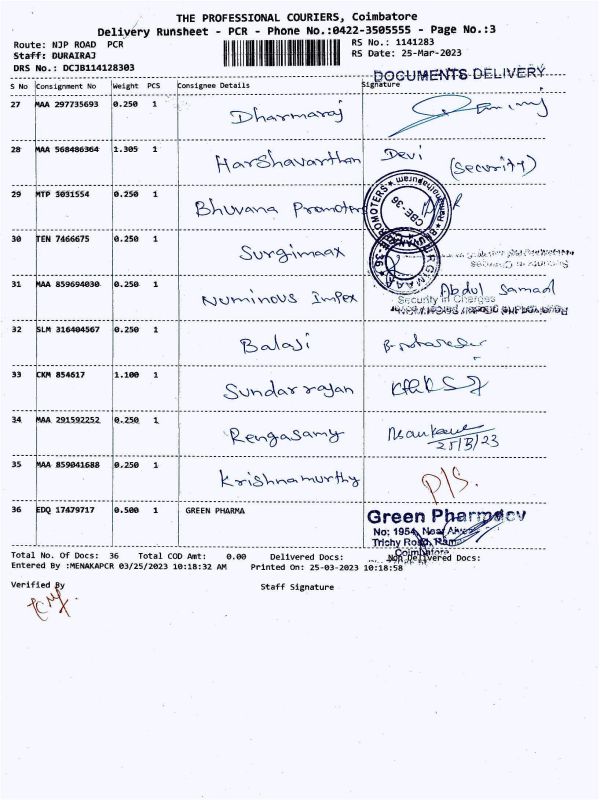 THE PROFESSIONAL COURIERS, Coimbatore
Delivery Runsheet - PCR - Phone No.:0422-3505555 - Page No.:3
Route: NJP ROAD PCR RS No.: 1141283
Staff: DURAIRAJ RS Date: 25-Mar-2023
DRS No.: DCJB114128303
DOCUMENTS DELIVERY
S No Consignment No Weight PCS Consignee Details Signature
27 MAA 297735693 0.250 1 Dharmaraj
28 MAA 568486364 1.305 1 Harshavarthan Devi (Security)
29 MTP 3031554 0.250 1 Bhuvana Promoters
30 TEN 7466675 0.250 1 Surgimaax
31 MAA 859694030 0.250 1 Numinous Impex Abdul Samad
Security In Charges
32 SLM 316404567 0.250 1 Balaji
33 CKM 854617 1.100 1 Sundarrajan
34 MAA 291592252 0.250 1 Rengasamy
25/3/23
35 MAA 859041688 0.250 1 Krishnamurthy P/S.
36 EDQ 17479717 0.500 1 GREEN PHARMA Green Pharmacy
No: 1954, Near
Trichy Road,
Coimbatore
Total No. Of Docs: 36 Total COD Amt: 0.00 Delivered Docs: Non Delivered Docs:
Entered By :MENAKAPCR 03/25/2023 10:18:32 AM Printed On: 25-03-2023 10:18:58
Verified By Staff Signature